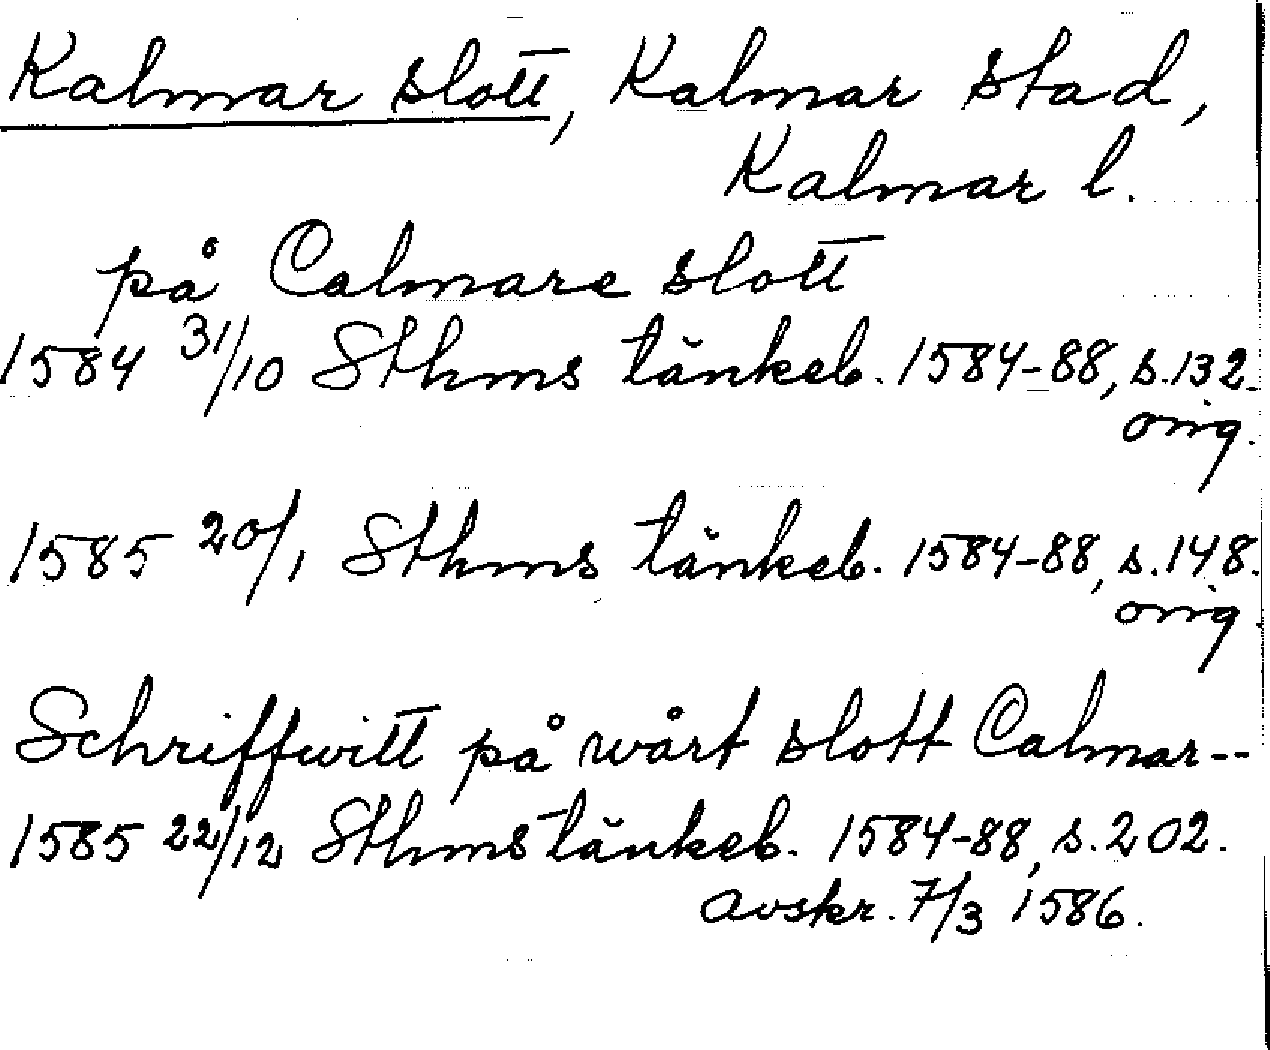 Kalmar slott, Kalmar stad,
Kalmar l.
på Calmare slott
1584 31/10 Sthms tänkeb. 1584-88, s. 132.
orig.
1585 20/1 Sthms tänkeb. 1584-88, s. 148.
orig.
Schriffwitt på wårt slott Calmar--
1585 22/12 Sthms tänkeb. 1584-88, s. 202.
avskr. 7/3 1586.